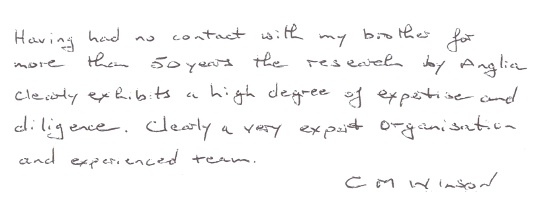 Having had no contact with my brother for
more than 50 years the research by Anglia
clearly exhibits a high degree of expertise and
diligence. Clearly a very expert organisation
and experienced team.
C M Winson